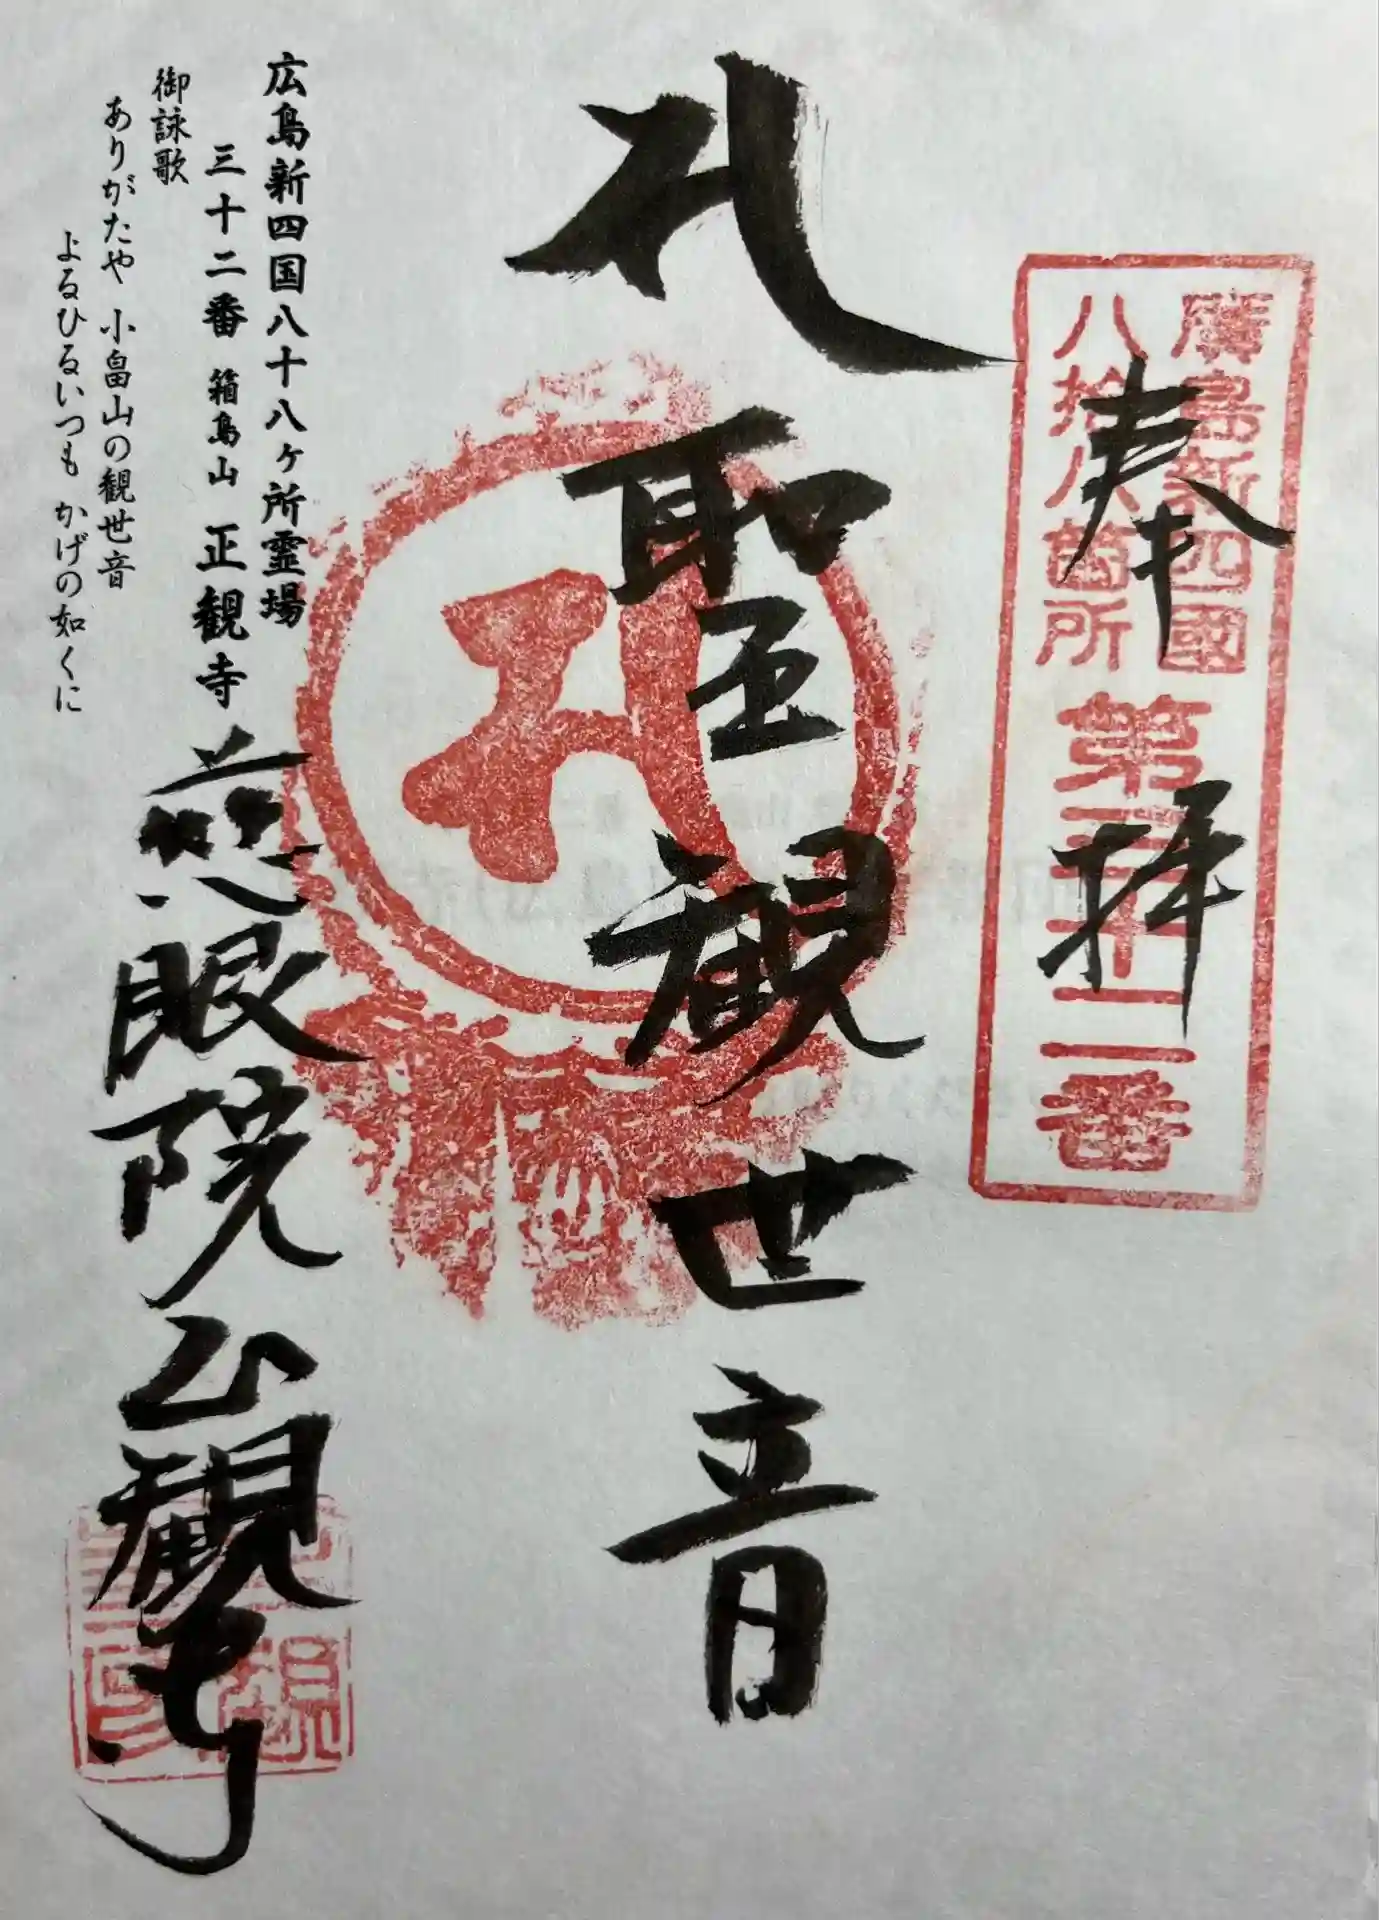 奉拝
廣島新四國
八拾八箇所
第三十二番
聖観世音
広島新四国八十八ヶ所霊場
三十二番 箱島山 正観寺
御詠歌
ありがたや 小畠山の観世音
よるひるいつも かげの如くに
慈眼院正観寺